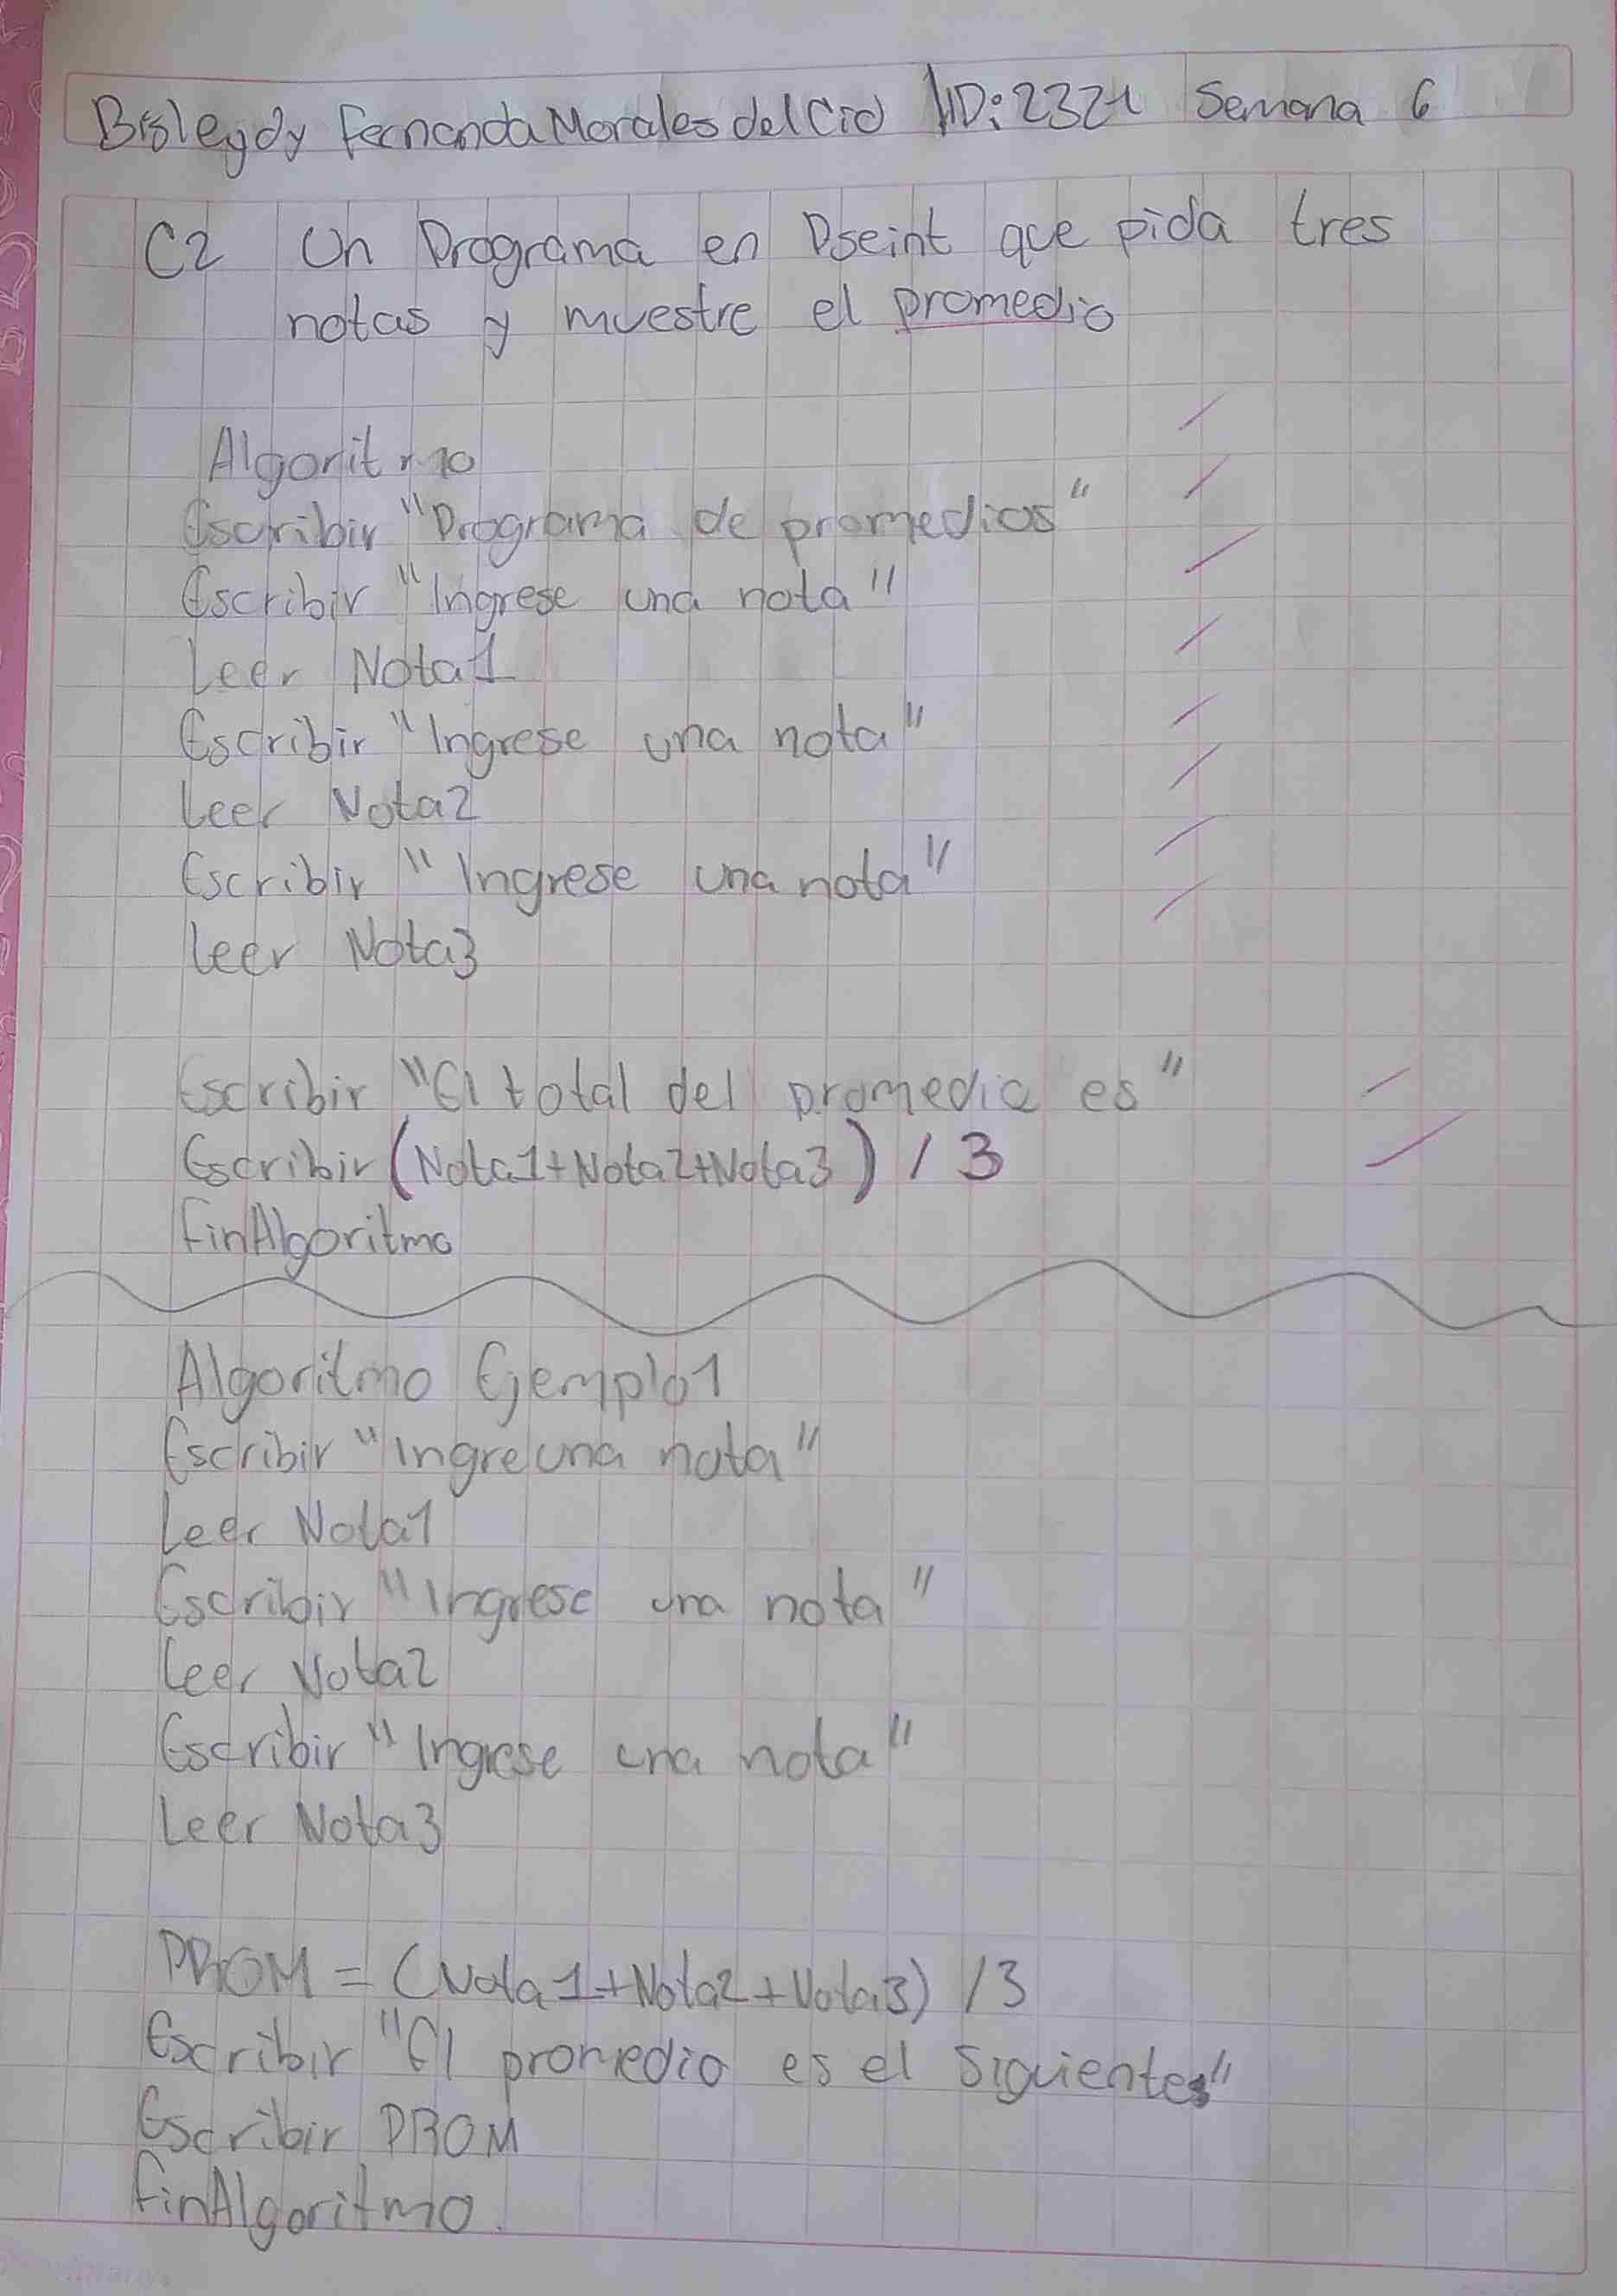 Bisleydy Fernanda Morales del Cid ID: 2321 Semana 6
C2 Un Programa en Pseint que pida tres
notas y muestre el promedio
Algoritmo
Escribir "Programa de promedios"
Escribir "Ingrese una nota"
Leer Nota1
Escribir "Ingrese una nota"
Leer Nota2
Escribir "Ingrese una nota"
Leer Nota3
Escribir "El total del promedio es"
Escribir (Nota1+Nota2+Nota3) / 3
FinAlgoritmo
Algoritmo Ejemplo1
Escribir "Ingre una nota"
Leer Nota1
Escribir "Ingrese una nota"
Leer Nota2
Escribir "Ingrese una nota"
Leer Nota3
PROM = (Nota1+Nota2+Nota3) /3
Escribir "El promedio es el siguientes"
Escribir PROM
FinAlgoritmo.